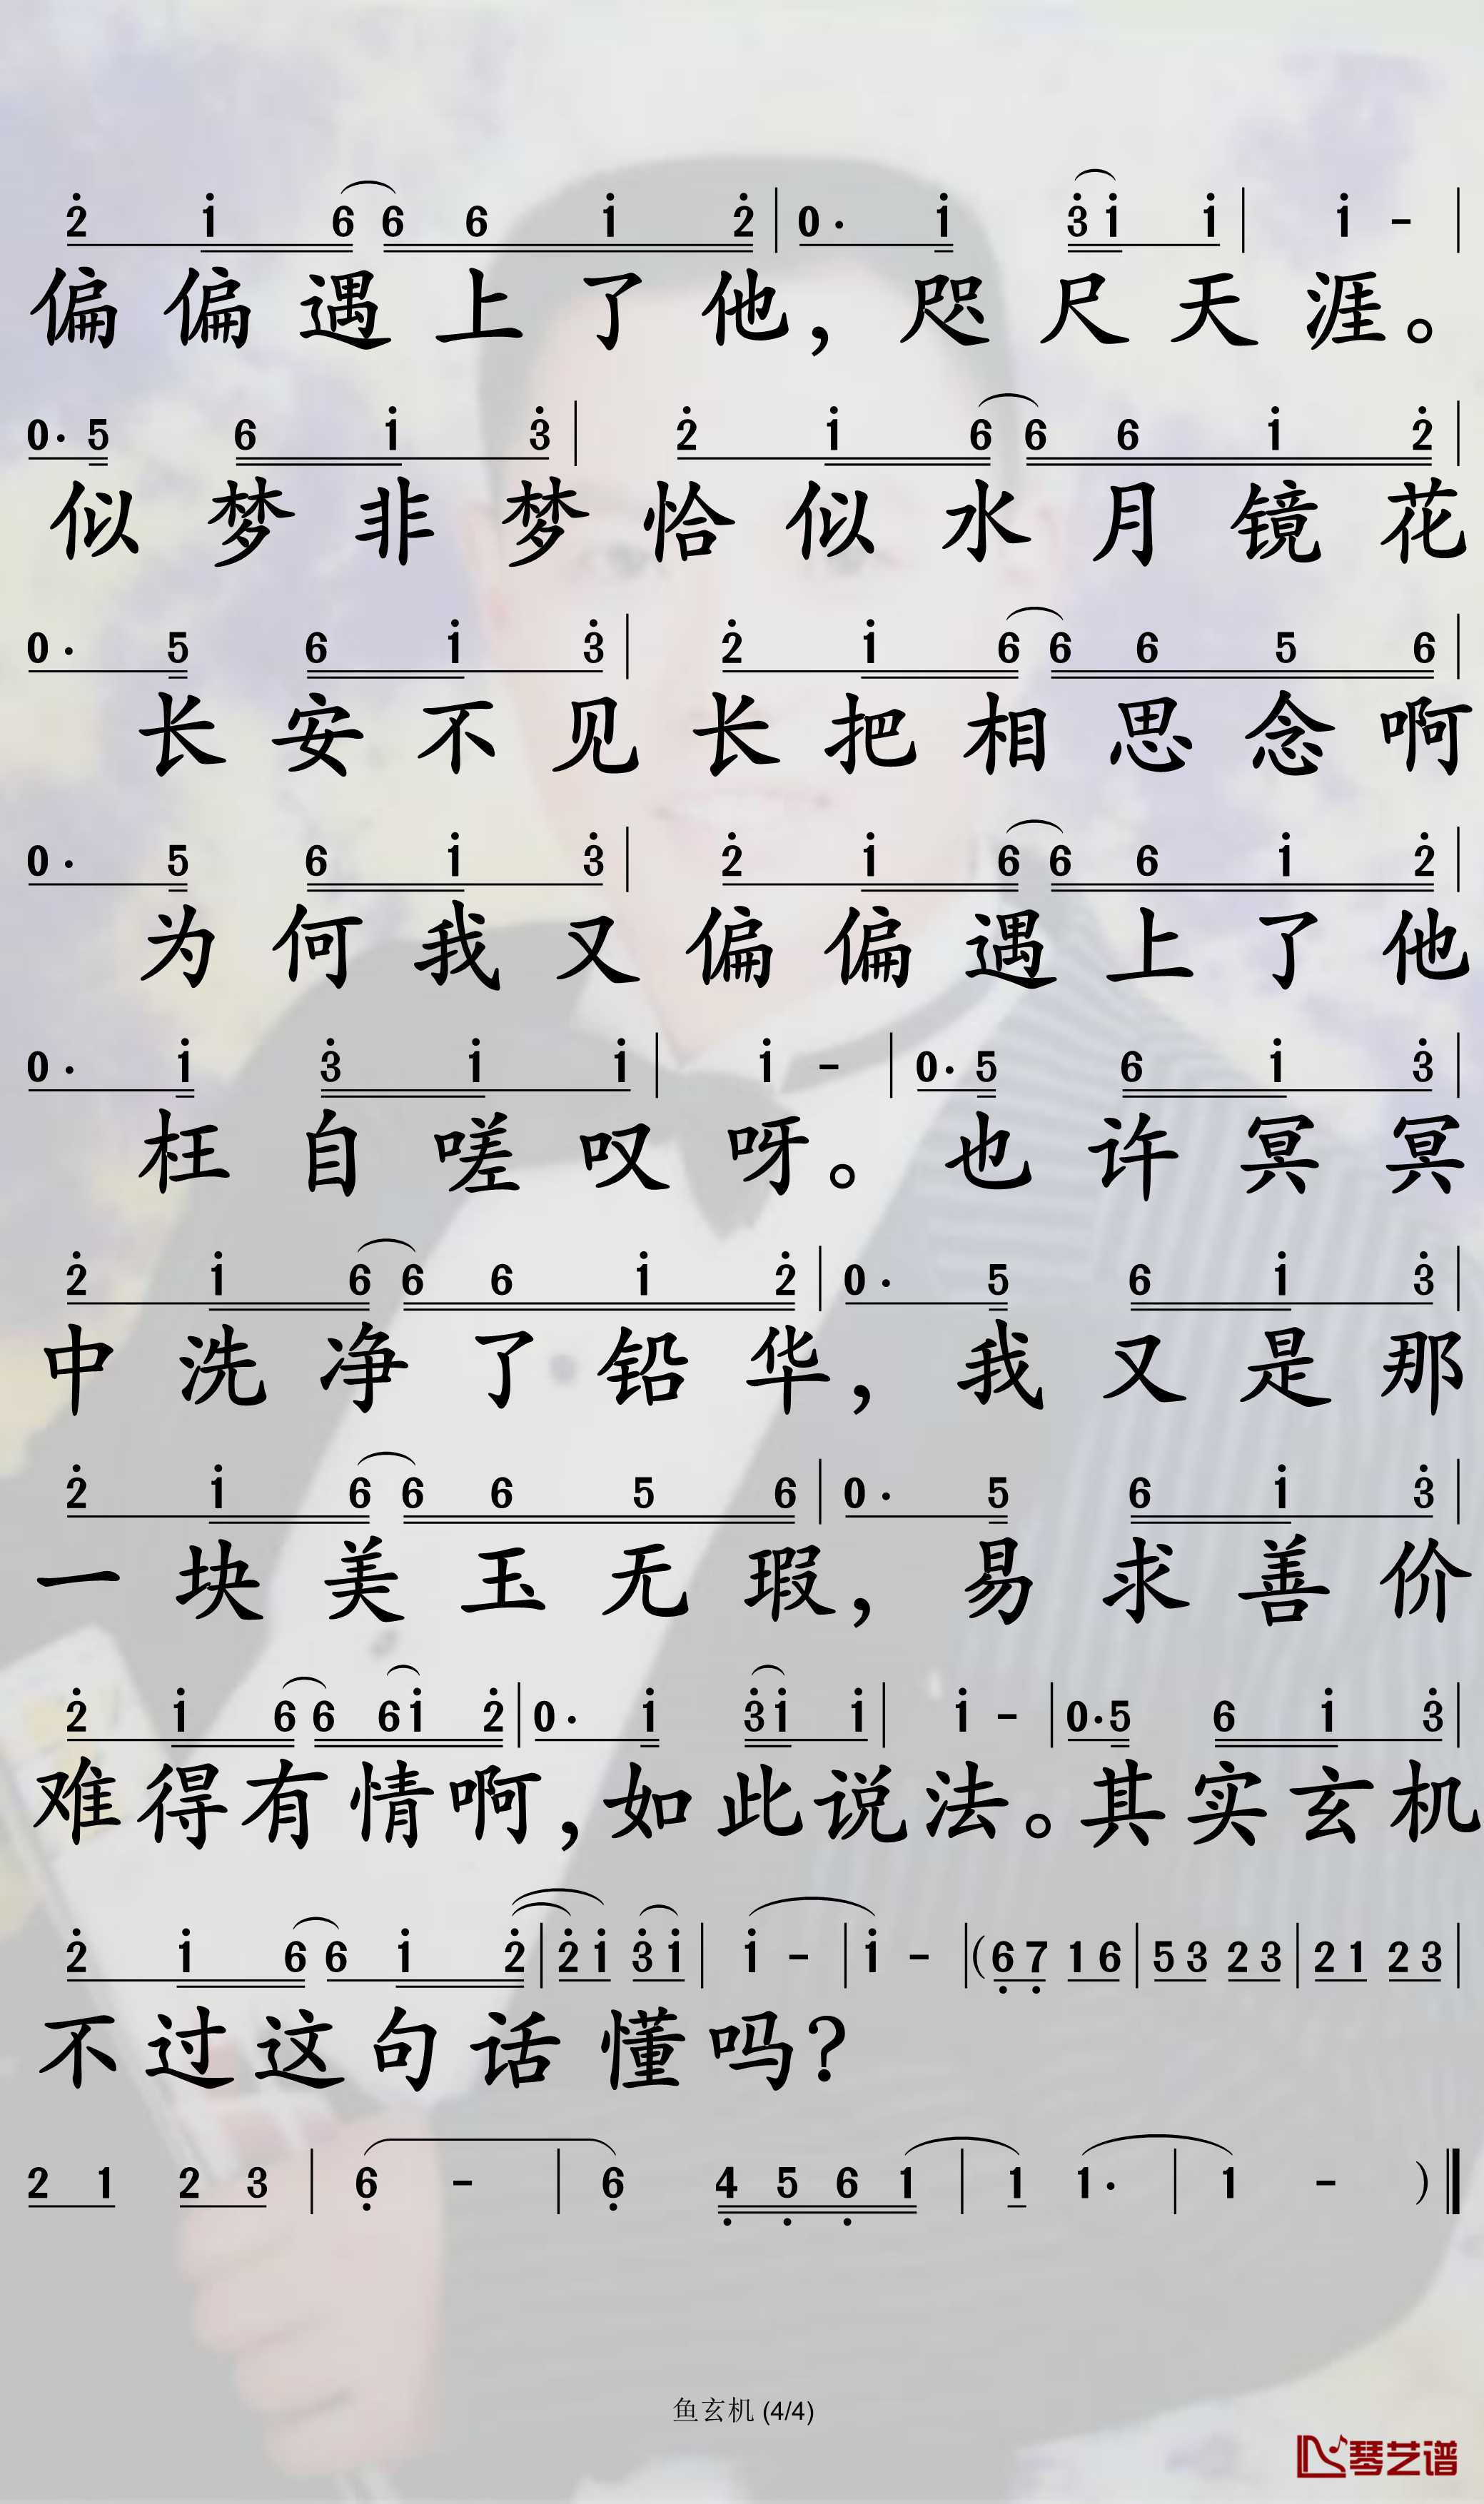 2̇ 1̇ 6 6 6 1̇ 2̇ | 0· 1̇ 3̇ 1̇ 1̇ | 1̇ - |
偏偏遇上了他，咫尺天涯。
0· 5 6 1̇ 3̇ | 2̇ 1̇ 6 6 6 1̇ 2̇ |
似梦非梦恰似水月镜花
0· 5 6 1̇ 3̇ | 2̇ 1̇ 6 6 6 5 6 |
长安不见长把相思念啊
0· 5 6 1̇ 3̇ | 2̇ 1̇ 6 6 6 1̇ 2̇ |
为何我又偏偏遇上了他
0· 1̇ 3̇ 1̇ 1̇ | 1̇ - | 0· 5 6 1̇ 3̇ |
枉自嗟叹呀。也许冥冥
2̇ 1̇ 6 6 6 1̇ 2̇ | 0· 5 6 1̇ 3̇ |
中洗净了铅华，我又是那
2̇ 1̇ 6 6 6 5 6 | 0· 5 6 1̇ 3̇ |
一块美玉无瑕，易求善价
2̇ 1̇ 6 6 6 1̇ 2̇ | 0· 1̇ 3̇ 1̇ 1̇ | 1̇ - | 0· 5 6 1̇ 3̇ |
难得有情啊，如此说法。其实玄机
2̇ 1̇ 6 6 1̇ 2̇ | 2̇ 1̇ 3̇ 1̇ | 1̇ - | 1̇ - | (6̣ 7̣ 1 6 | 5 3 2 3 | 2 1 2 3 |
不过这句话懂吗？
2 1 2 3 | 6̣ - | 6̣ 4̣ 5̣ 6̣ 1 | 1 1· | 1 - ) ‖
鱼玄机 (4/4)
琴艺谱